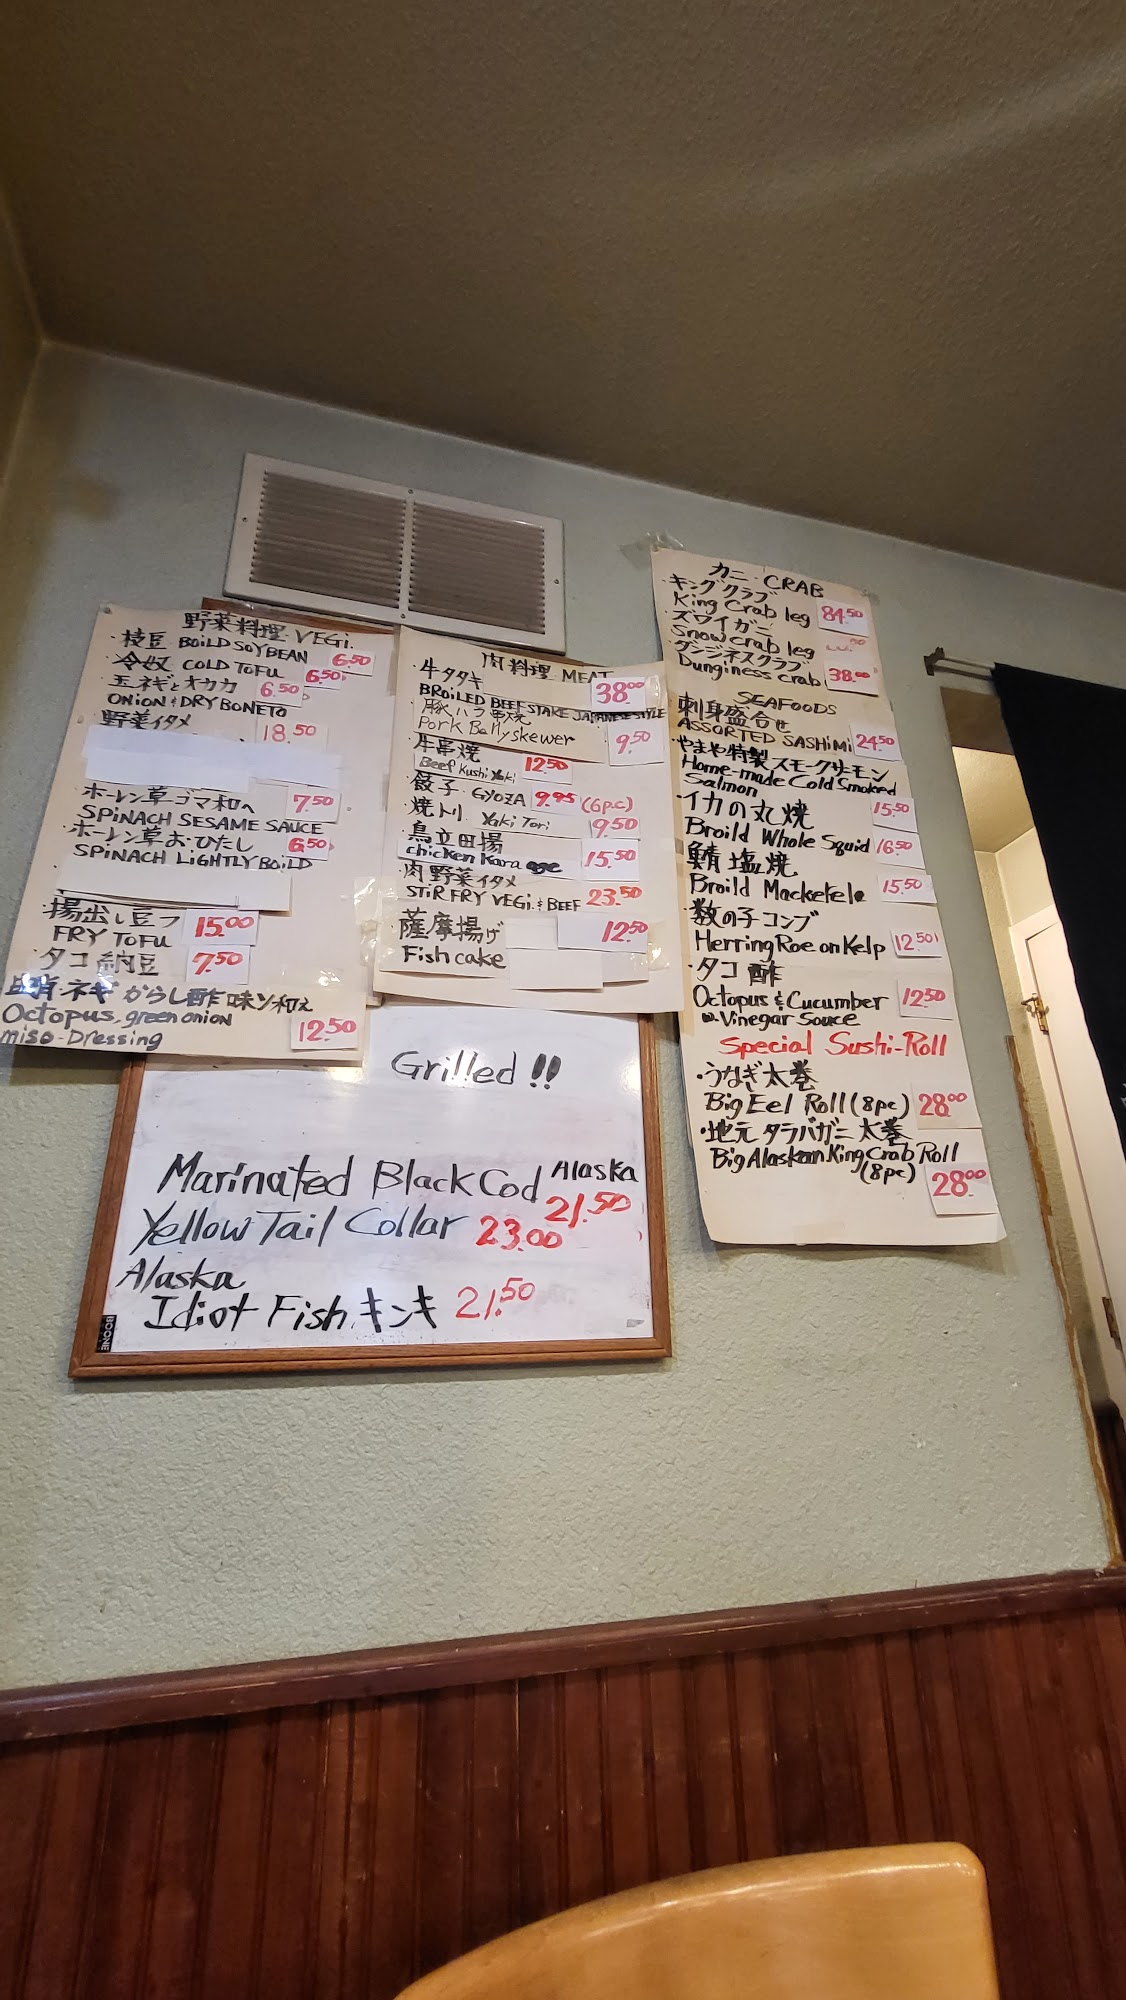 野菜料理 VEGi.
・枝豆 BOiLD SOYBEAN 6.50
・冷奴 COLD TOFU 6.50
・玉ネギとオカカ 6.50
ONiON & DRY BONETO
・野菜イタメ 18.50
・ホーレン草ゴマ和へ 7.50
SPiNACH SESAME SAUCE
・ホーレン草おひたし 6.50
SPiNACH LiGHTLY BOiLD
揚出し豆フ 15.00
FRY TOFU
・タコ納豆 7.50
ネギ からし酢味ソ和え
Octopus, green onion
miso-Dressing 12.50
肉料理 MEAT
・牛タタキ 38.00
BROiLED BEEFSTAKE JAPANESE STYLE
・豚バラ串焼
Pork Bellyskewer 9.50
・牛串焼 12.50
Beef Kushi Yaki
・餃子 GYOZA 9.95 (6p.c)
・焼トリ Yaki Tori 9.50
・鳥立田揚
chicken Kara age 15.50
・肉野菜イタメ
STiR FRY VEGi. & BEEF 23.50
・薩摩揚げ 12.50
Fish cake
カニ・CRAB
・キングクラブ
King Crab leg 84.50
・ズワイガニ
Snow crab leg
・ダンジネスクラブ
Dunginess crab 38.00
SEAFOODS
・刺身盛合せ
ASSORTED SASHiMi 24.50
・やまや特製スモークサーモン
Home-made Cold Smoked
Salmon 15.50
・イカの丸焼
Broild Whole Squid 16.50
・鯖塩焼
Broild Mackekele 15.50
・数の子コンブ
Herring Roe on Kelp 12.50
・タコ酢
Octopus & Cucumber 12.50
Vinegar Sauce
Special Sushi-Roll
・うなぎ太巻
Big Eel Roll (8pc) 28.00
・地元タラバガニ太巻
Big Alaskan King Crab Roll
(8pc) 28.00
Grilled !!
Marinated Black Cod Alaska
21.50
Yellow Tail Collar 23.00
Alaska
Idiot Fish キンキ 21.50
BOONE